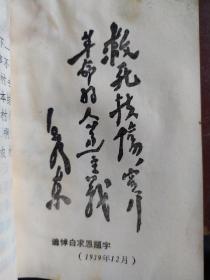 救死扶傷,实行
革命的人道主義
毛泽东
悼白求恩題字
(1939年12月)